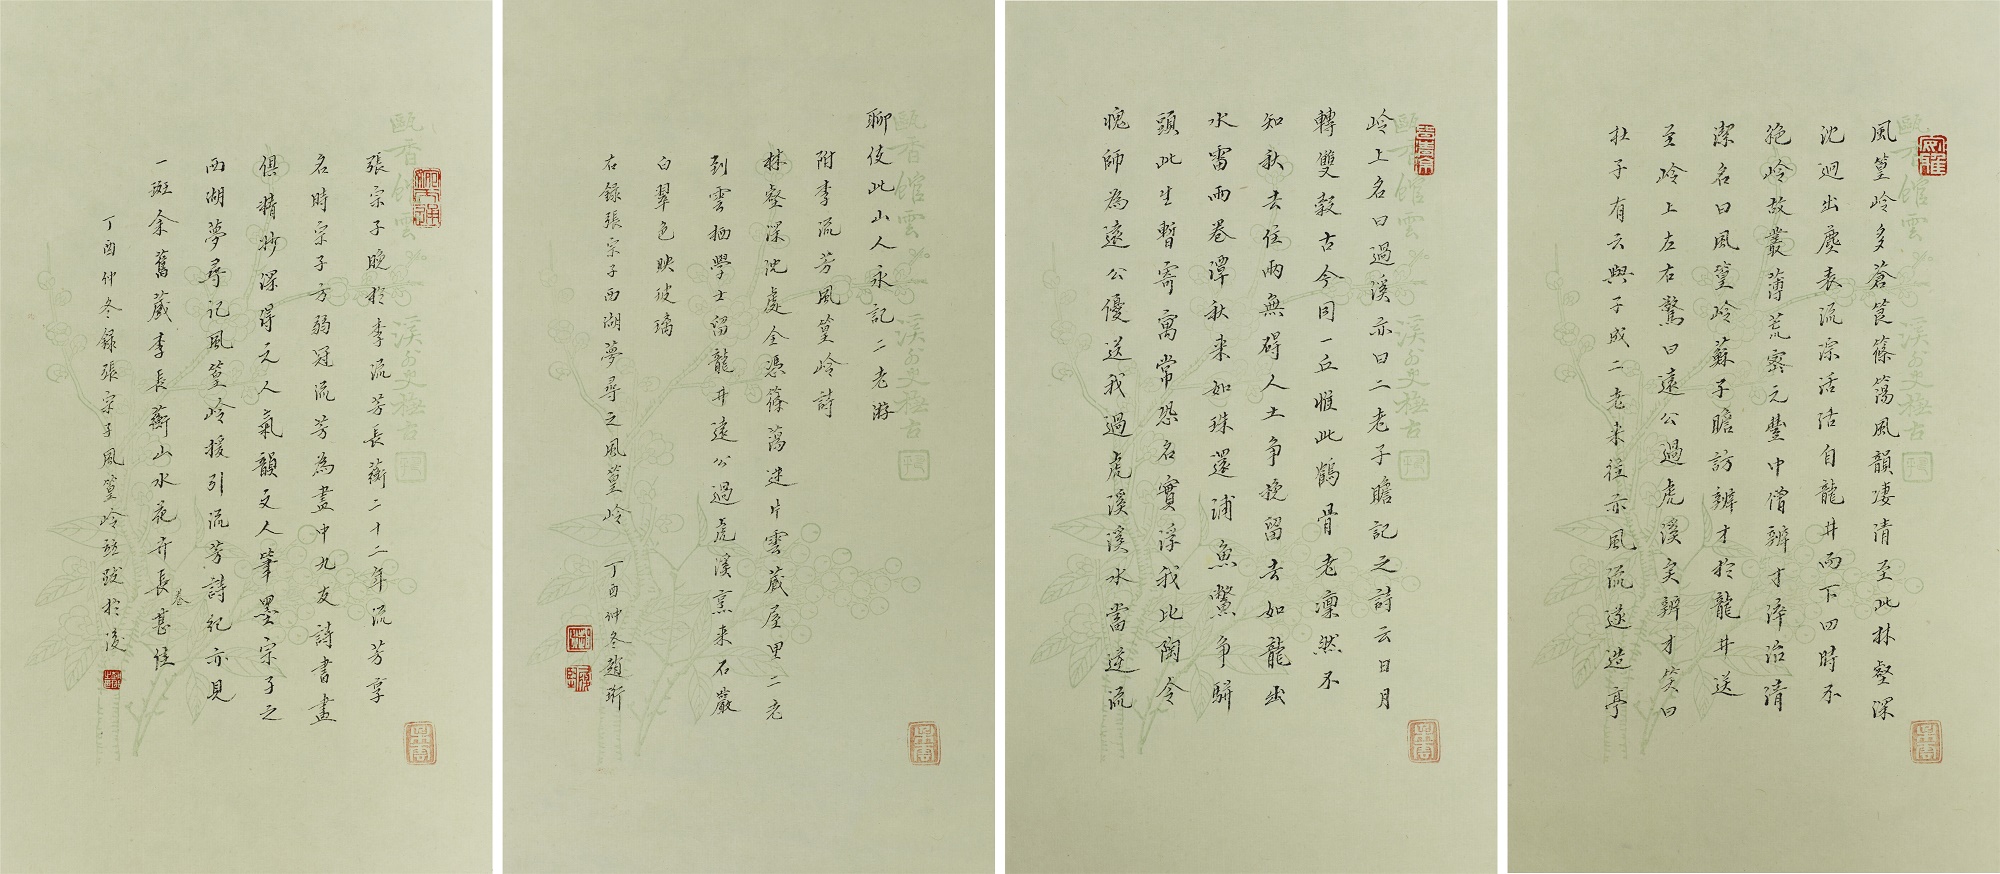 風篁嶺多蒼筤篠簜風韻凄清至此林壑深
沈迥出塵表流淙活活自龍井而下四時不
絶嶺故叢薄荒密元豐中僧辨才淬治清
潔名曰風篁嶺蘇子瞻訪辨才於龍井送
至嶺上左右驚曰遠公過虎溪矣辨才笑曰
杜子有云與子成二老来往亦風流遂造亭
嶺上名曰過溪亦曰二老子瞻記之詩云日月
轉雙轂古今同一丘惟此鶴骨老凜然不
知秋去住兩無碍人土争挽留去如龍出
水雷雨卷潭秋来如珠還浦魚鱉争駢
頭此生暫寄寓常恐名實浮我比陶令
愧師為遠公優送我過虎溪溪水當逆流
聊使此山人永記二老游
附李流芳風篁嶺詩
林壑深沈處全憑篠簜迷片雲藏屋里二老
到雲栖學士留龍井遠公過虎溪烹来石巖
白翠色映玻璃
右録張宗子西湖夢尋之風篁嶺 丁酉仲冬趙珩
張宗子晚於李流芳長蘅二十二年流芳享
名時宗子方弱冠流芳為畫中九友詩書畫
俱精妙深得元人氣韻文人筆墨宗子之
西湖夢尋記風篁嶺援引流芳詩紀亦見
一斑余舊藏李長蘅山水花卉長卷甚佳
丁酉仲冬録張宗子風篁嶺並跋於後
甌香館雲溪外史極古